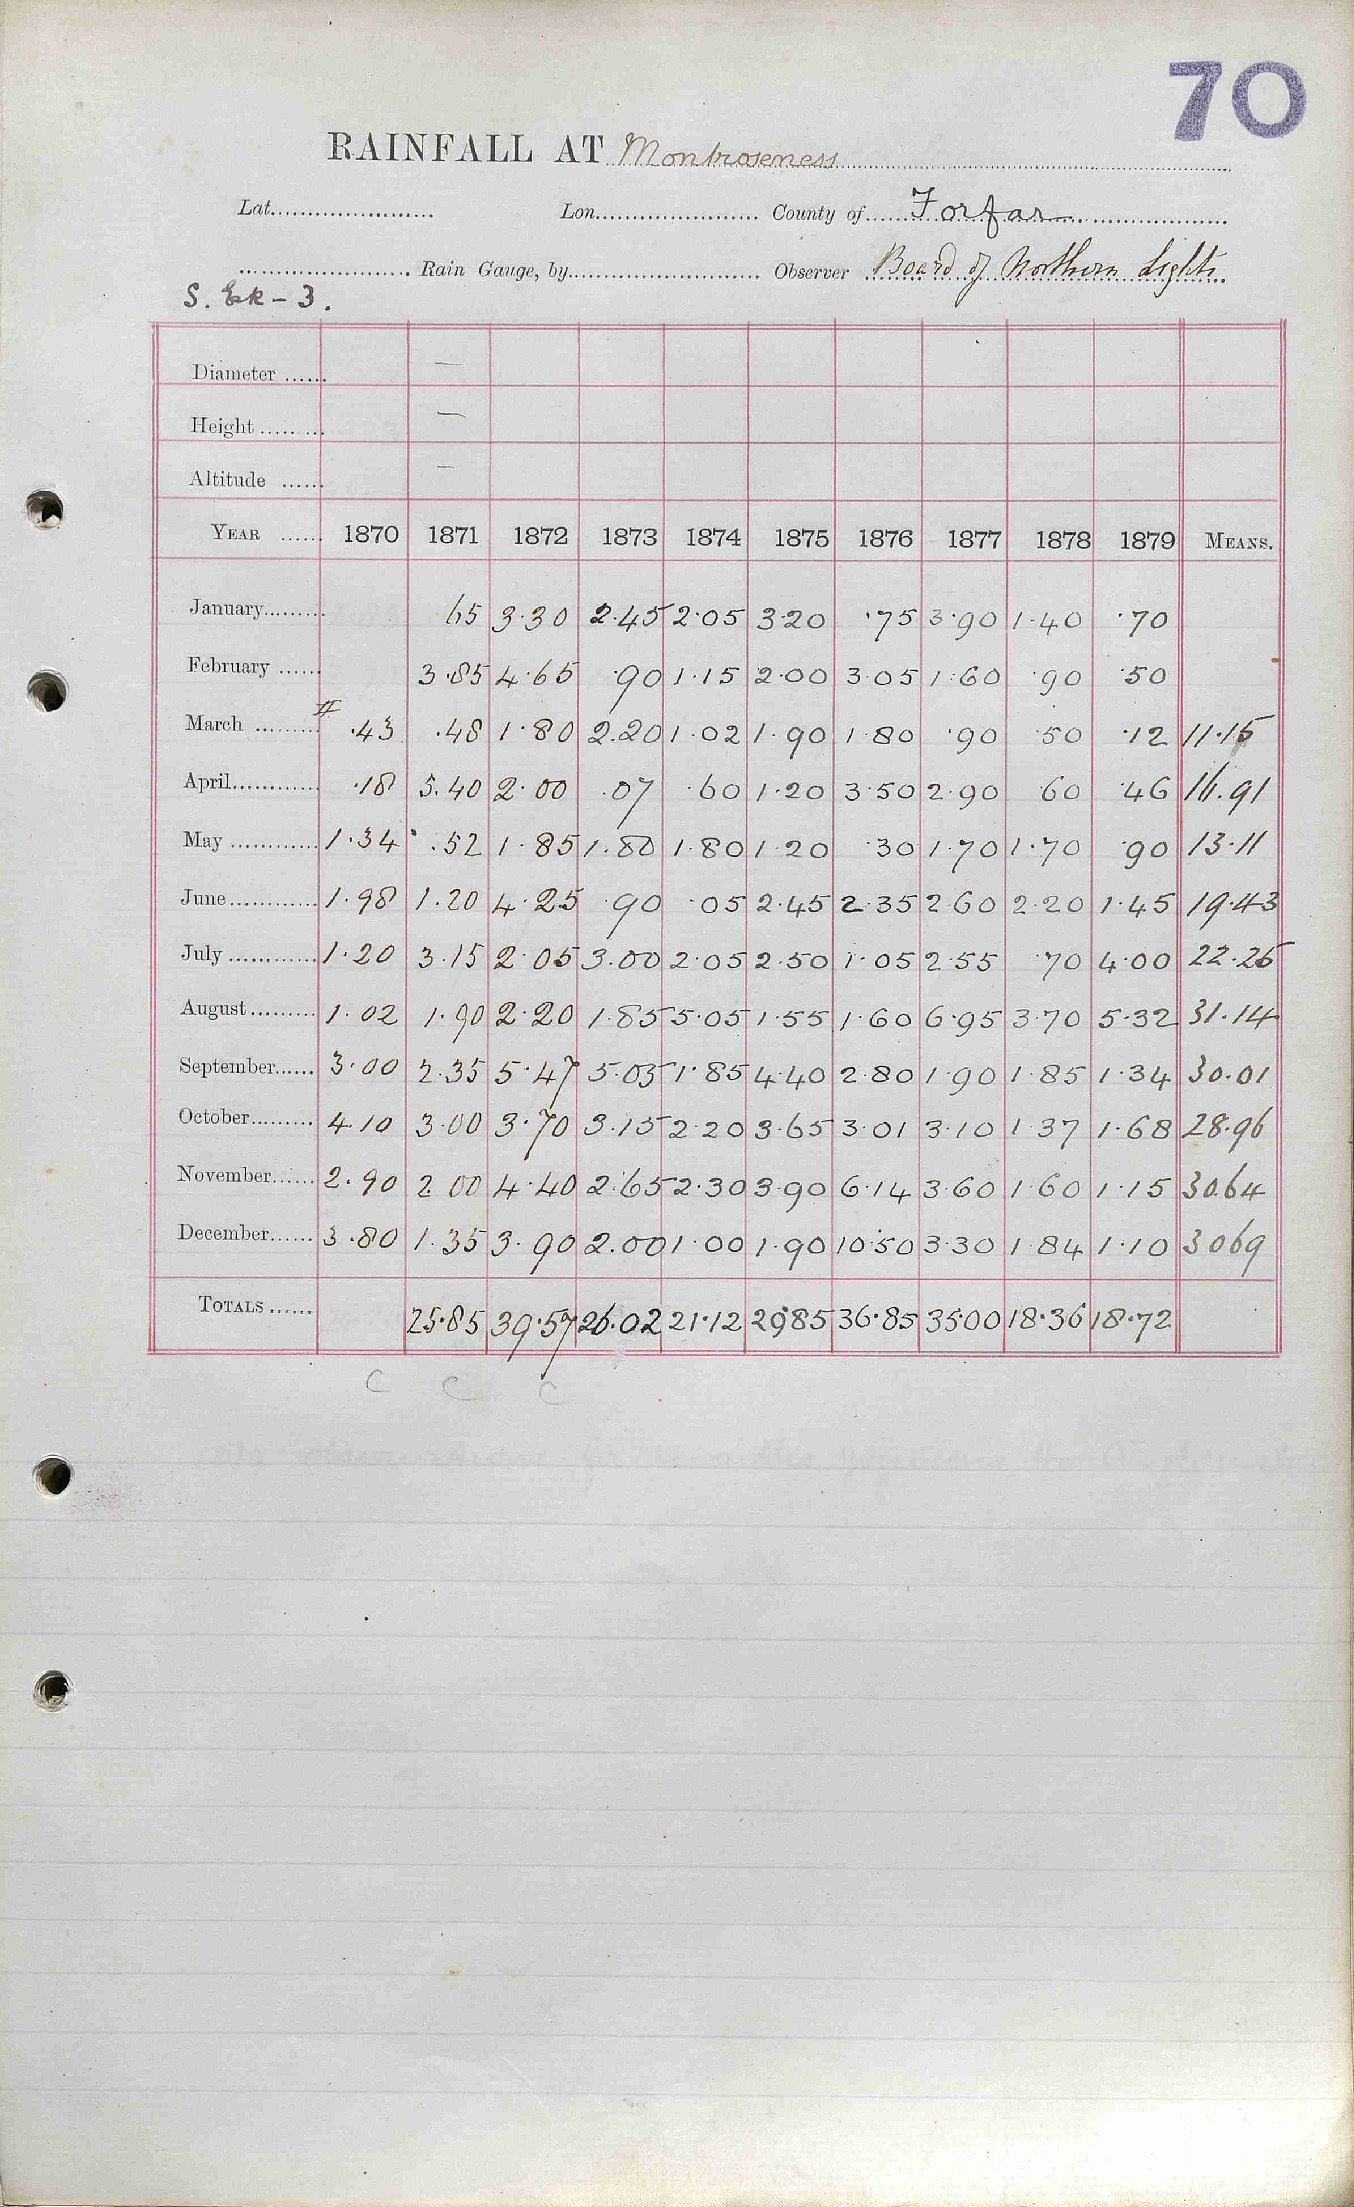 70
RAINFALL AT Montroseness
Lat. Lon. County of Forfar
Rain Gauge, by Observer Board of Northern Lights
S. Esk - 3.
Diameter —
Height —
Altitude —
YEAR 1870 1871 1872 1873 1874 1875 1876 1877 1878 1879 MEANS.
January 65 3.30 2.45 2.05 3.20 .75 3.90 1.40 .70
February 3.85 4.65 .90 1.15 2.00 3.05 1.60 .90 .50
March .43 .48 1.80 2.20 1.02 1.90 1.80 .90 .50 .12 11.15
April .18 5.40 2.00 .07 .60 1.20 3.50 2.90 60 .46 16.91
May 1.34 .52 1.85 1.80 1.80 1.20 .30 1.70 1.70 .90 13.11
June 1.98 1.20 4.25 .90 .05 2.45 2.35 2.60 2.20 1.45 19.43
July 1.20 3.15 2.05 3.00 2.05 2.50 1.05 2.55 .70 4.00 22.25
August 1.02 1.90 2.20 1.85 5.05 1.55 1.60 6.95 3.70 5.32 31.14
September 3.00 2.35 5.47 5.05 1.85 4.40 2.80 1.90 1.85 1.34 30.01
October 4.10 3.00 3.70 3.15 2.20 3.65 3.01 3.10 1.37 1.68 28.96
November 2.90 2.00 4.40 2.65 2.30 3.90 6.14 3.60 1.60 1.15 30.64
December 3.80 1.35 3.90 2.00 1.00 1.90 10.50 3.30 1.84 1.10 30.69
TOTALS 25.85 39.57 26.02 21.12 29.85 36.85 35.00 18.36 18.72
C C C